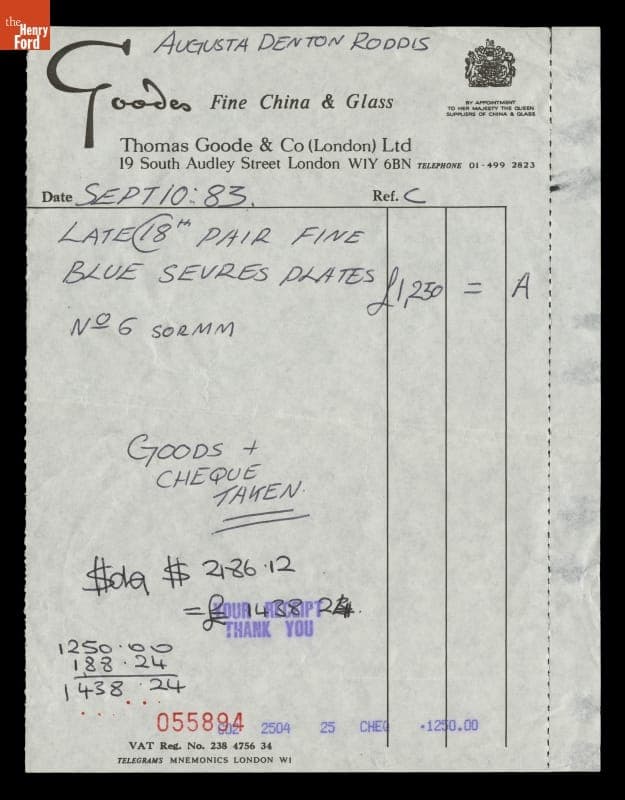 the Henry Ford
AUGUSTA DENTON RODDIS
Goodes Fine China & Glass
BY APPOINTMENT
TO HER MAJESTY THE QUEEN
SUPPLIERS OF CHINA & GLASS
Thomas Goode & Co (London) Ltd
19 South Audley Street London W1Y 6BN TELEPHONE 01-499 2823
Date SEPT 10: 83. Ref. C
LATE 18TH PAIR FINE
BLUE SEVRES PLATES £1,250 = A
No 6 SORMM
GOODS +
CHEQUE
TAKEN.
$ $ 2186.12
= £ 1438.24.
YOUR RECEIPT
THANK YOU
1250.00
188.24
1438.24
055894
002 2504 25 CHEQ -1250.00
VAT Reg. No. 238 4756 34
TELEGRAMS MNEMONICS LONDON W1